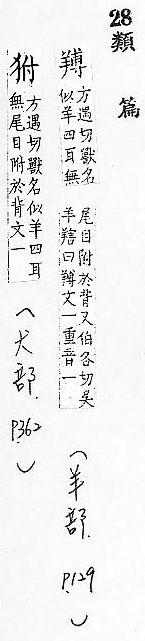 28 類 篇
方遇切獸名
似羊四耳無
尾目附於背又伯各切吳
羊曰文一重音一
(羊部. p.129)
方遇切獸名似羊四耳
無尾目附於背文一
(犬部. p362.)